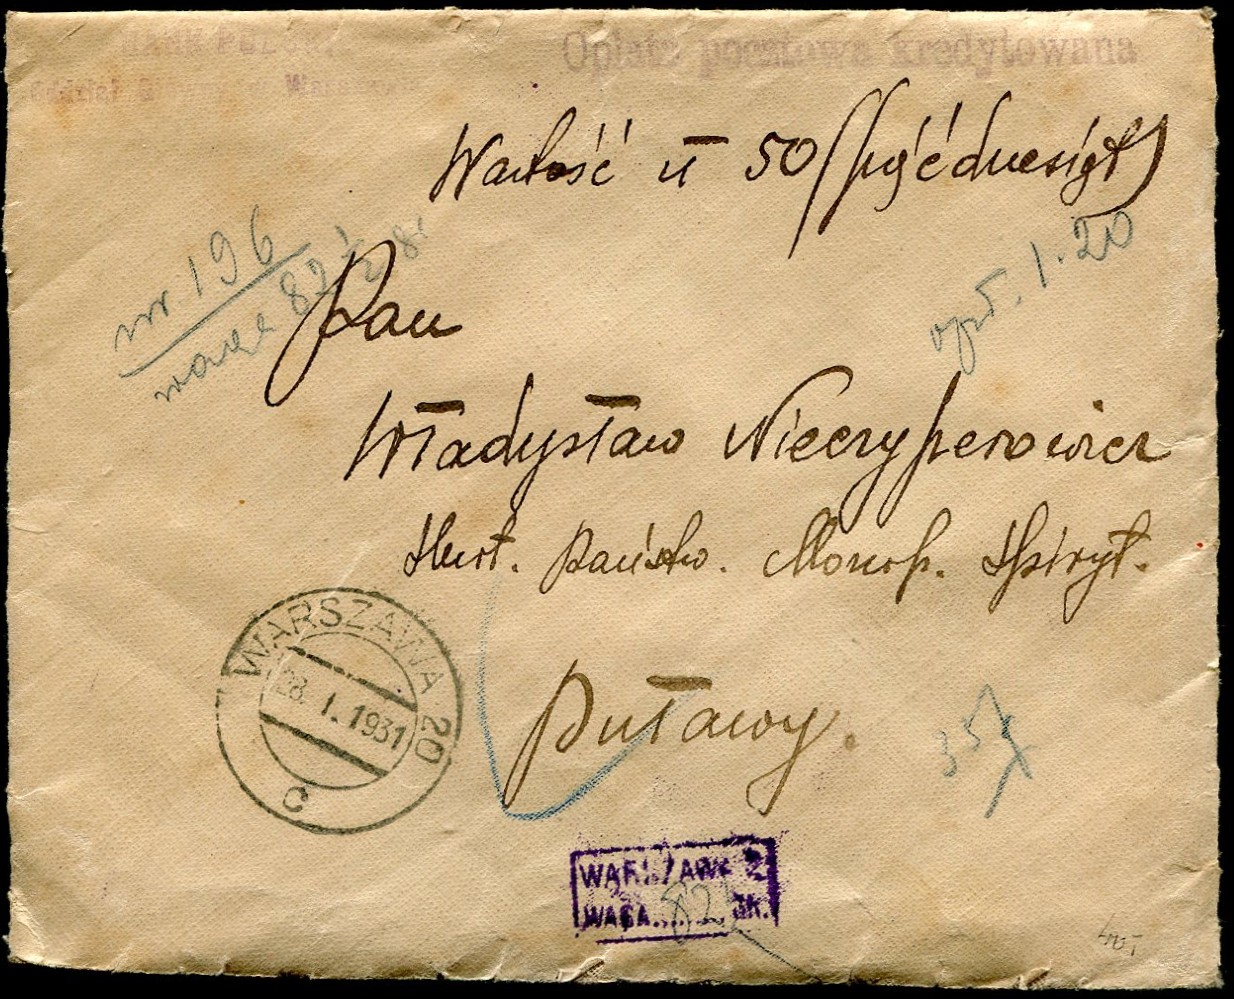 BANK POLSKI
Oddział Główny w Warszawie
Opłata pocztowa kredytowana
Wartość zł 50 (pięćdziesiąt)
nr. 196
waga 82
opł. 1.20
Pan
Władysław Nieczyperowicz
Hurt. Państw. Monop. Spiryt.
Puławy.
WARSZAWA 20
28. I. 1931
c
35
WARSZAWA 2
WAGA 82